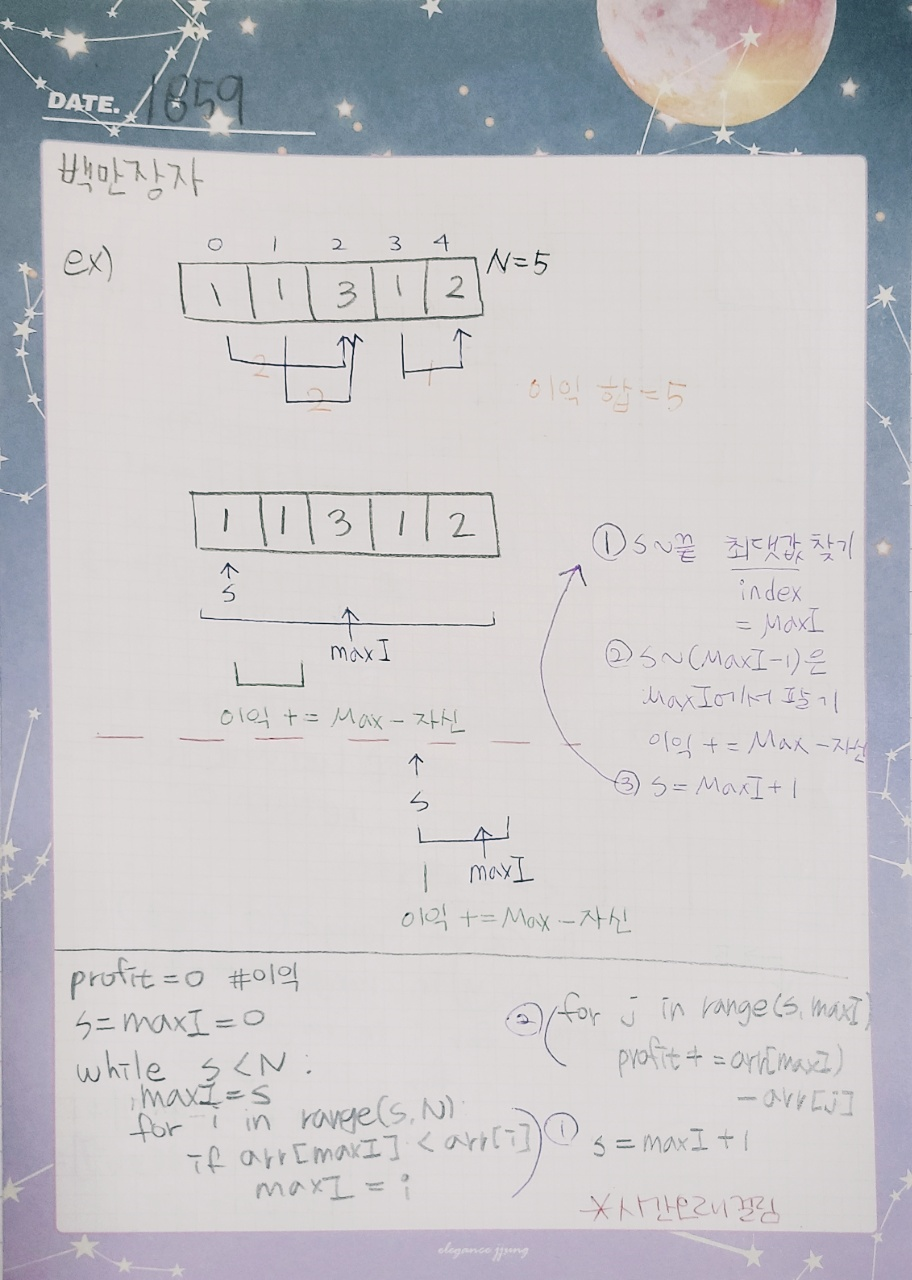 DATE. 1859
백만장자
ex)
0 1 2 3 4
1 1 3 1 2 N=5
2 1
2
이익 합=5
1 1 3 1 2
S
maxI
이익 += Max - 자신
① S~끝 최댓값 찾기
index
= MaxI
② S~(MaxI-1)은
MaxI에서 팔기
이익 += Max - 자신
③ S = MaxI+1
S
1 maxI
이익 += Max - 자신
profit = 0 #이익
s = maxI = 0
while s < N :
maxI = s
for i in range(s, N)
if arr[maxI] < arr[i]
maxI = i
①
② for j in range(s, maxI)
profit += arr[maxI)
- arr[j]
s = maxI + 1
*시간오래걸림
elegance jjung